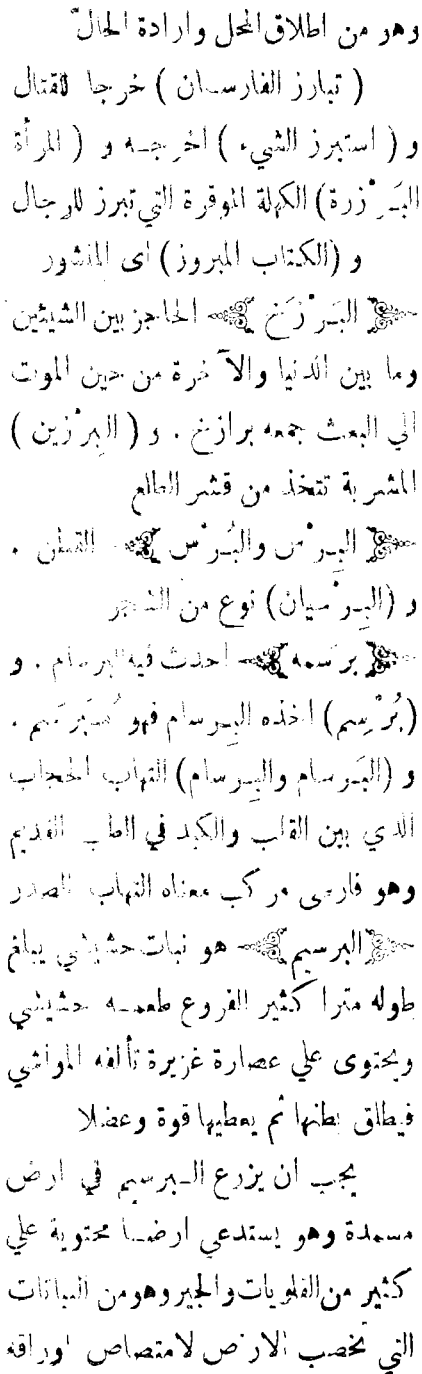 وهو من اطلاق المحل وارادة الحال
( تبارز الفارسان ) خرجا للقتال
و ( استبرز الشيء ) اخرجه و ( المرأة
البَرْزرة) الكهلة الموقرة التي تبرز للرجال
و (الكتاب المبروز) اى المنشور
﴿ البَرْزَخ ﴾ الحاجز بين الشيئين
وما بين الدنيا والآخرة من حين الموت
الي البعث جمعه برازخ . و ( البِرْزين )
المشربة تتخذ من قشر الطلع
﴿ البِرْس والبُرْس ﴾ القطن .
و (البِرْسيان) نوع من الشجر
﴿ برسمه ﴾ احدث فيه البرسام . و
(بُرْسِم) أخذه البِرسام فهو مُبَرسَم .
و (البَرسام والبِرسام) التهاب الحجاب
الذي بين القلب والكبد في الطب القديم
وهو فارسى مركب معناه التهاب الصدر
﴿ البرسيم ﴾ هو نبات حشيشي يبلغ
طوله مترا كثير الفروع طعمه حشيشي
ويحتوى علي عصارة غزيرة تألفه المواشي
فيطلق بطنها ثم يعطيها قوة وعضلا
يجب ان يزرع البرسيم في ارض
مسمدة وهو يستدعي ارضا محتوية علي
كثير من القلويات والجير وهو من النباتات
التي تخصب الارض لامتصاص اوراقه